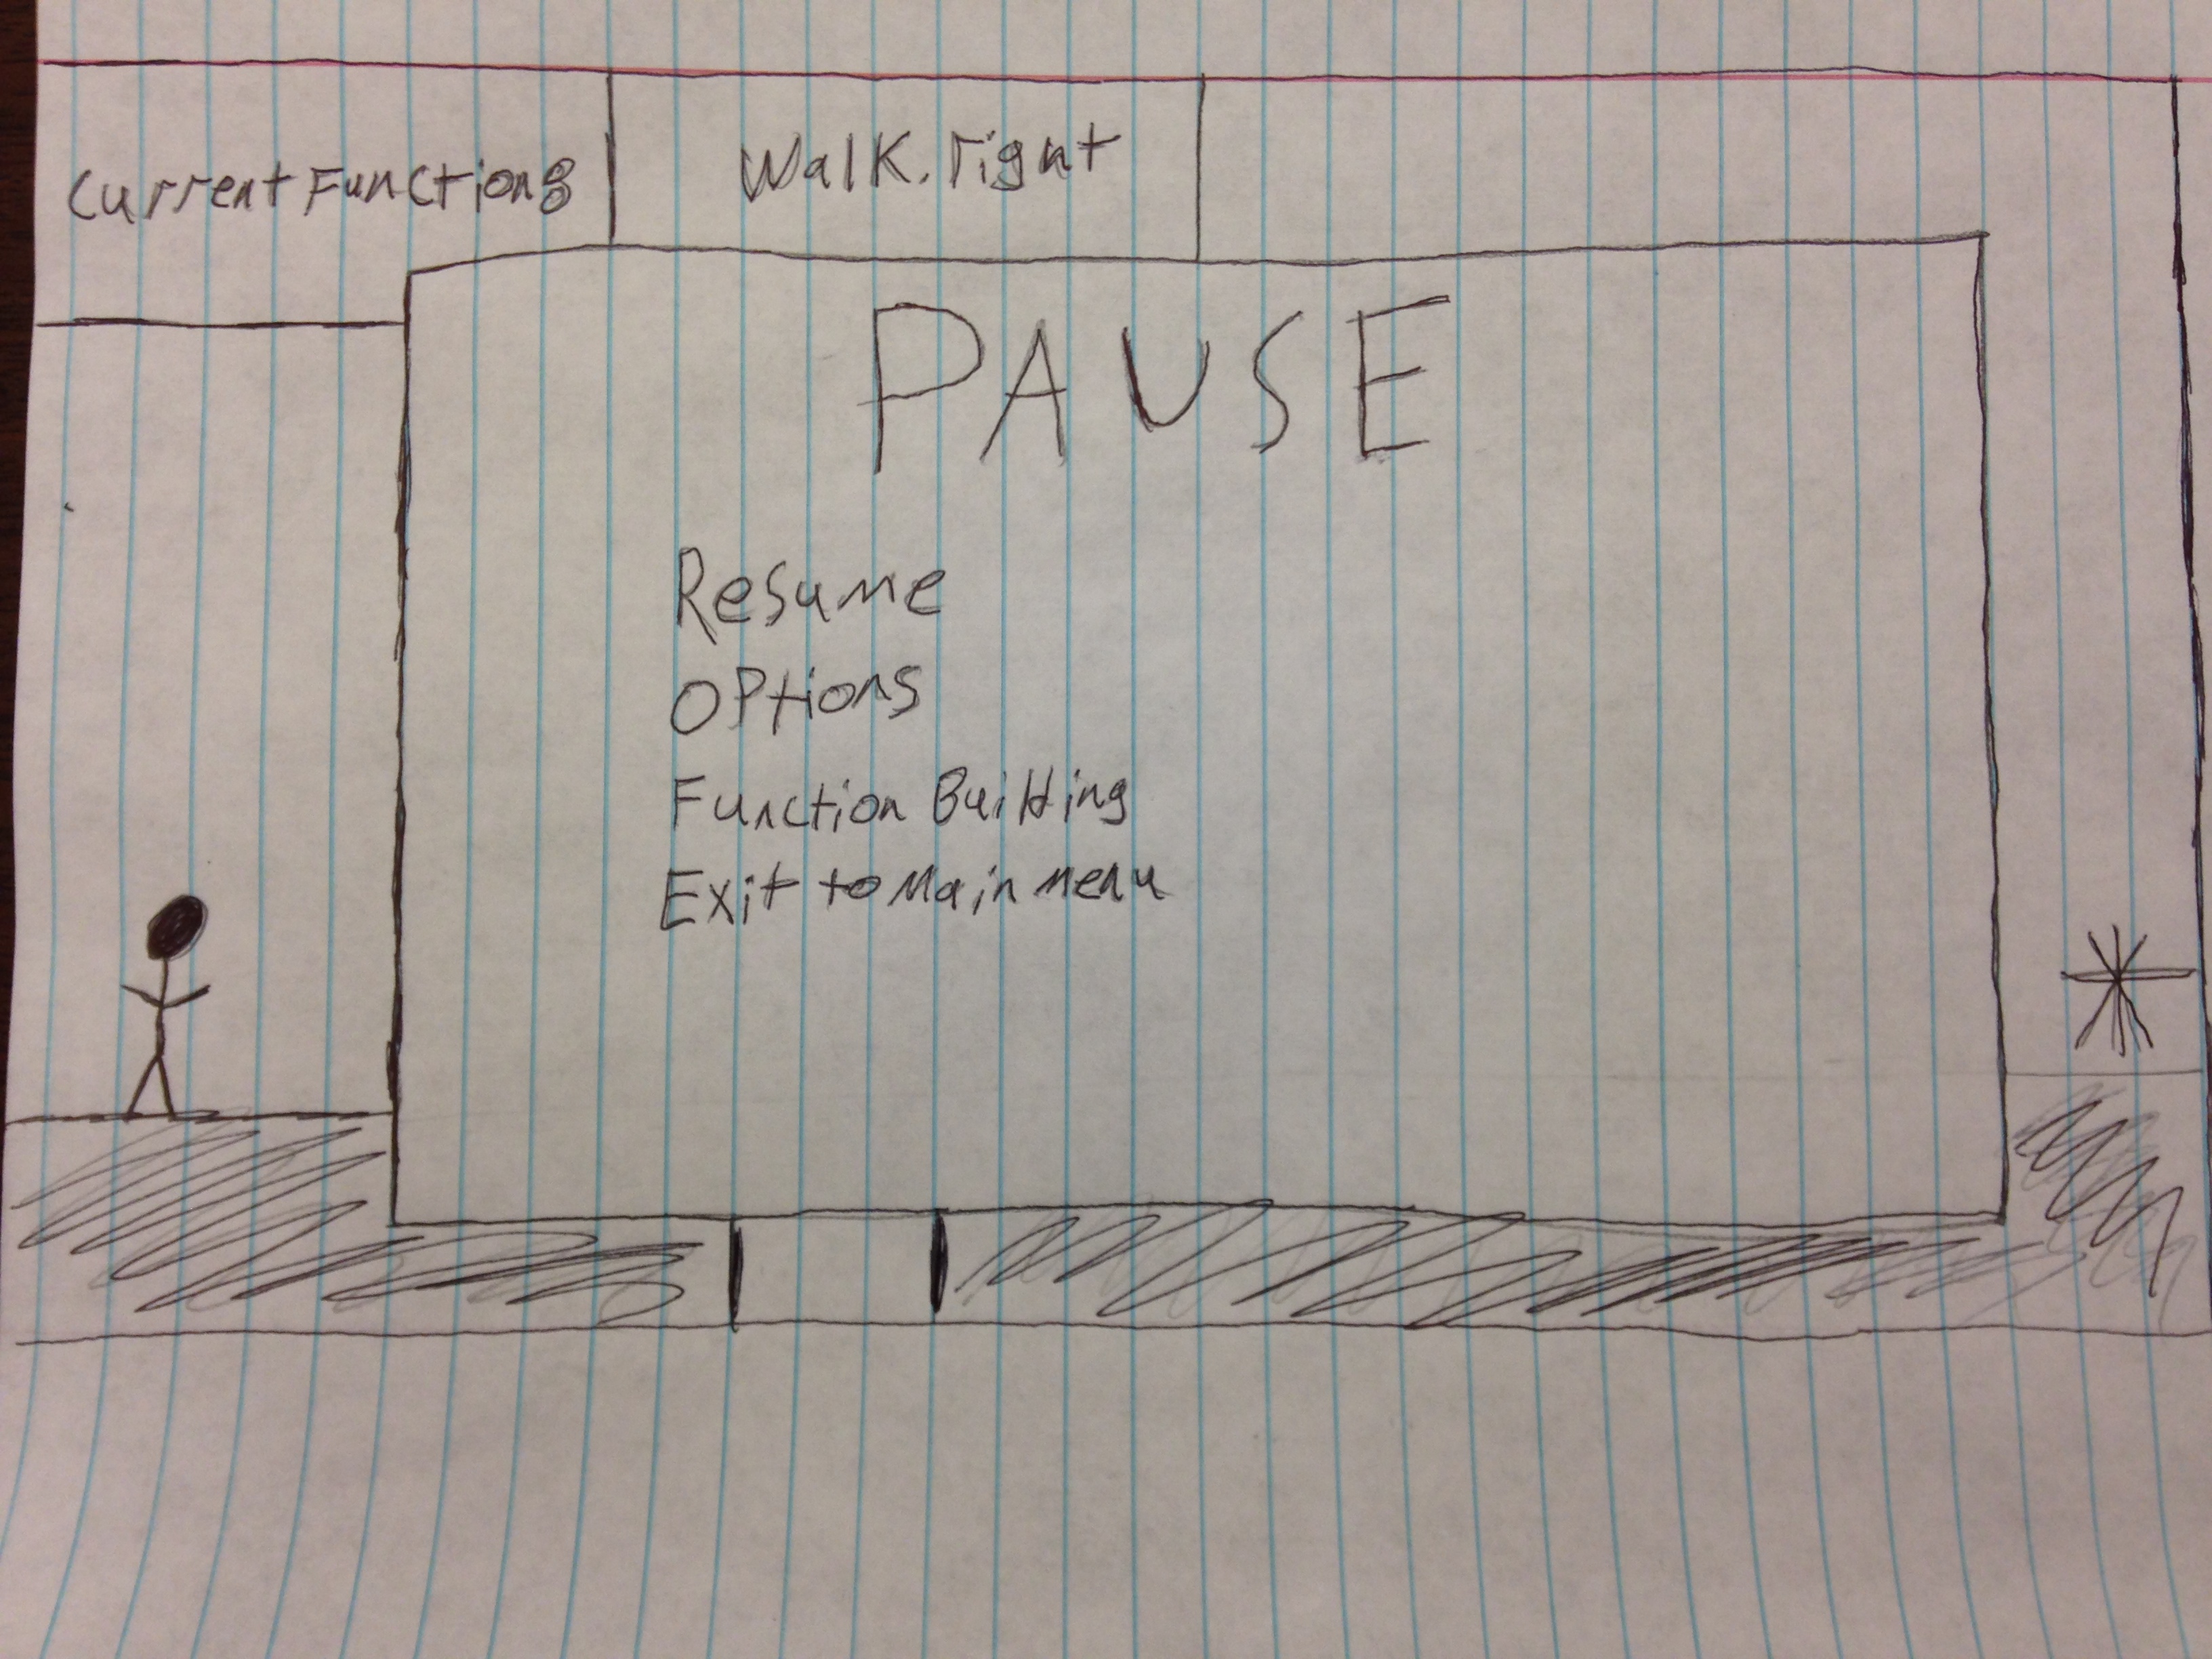 Current Functions
Walk.right
PAUSE
Resume
Options
Function Building
Exit to Main menu